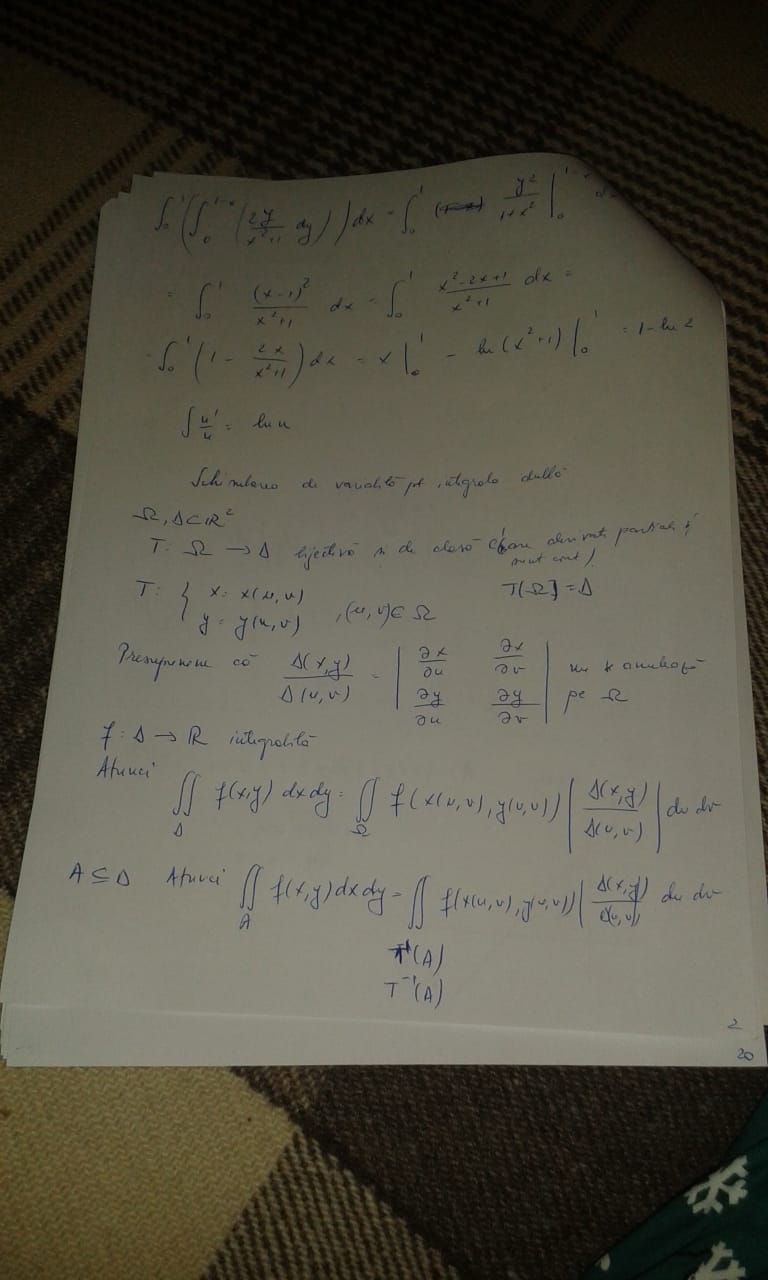 ∫₀¹ (∫₀^{1-x} (2y/(x²+1) dy)) dx = ∫₀¹ y²/(1+x²) |₀^{1-x}
= ∫₀¹ (x-1)²/(x²+1) dx = ∫₀¹ (x²-2x+1)/(x²+1) dx =
= ∫₀¹ (1 - 2x/(x²+1)) dx = x |₀¹ - ln(x²+1) |₀¹ = 1 - ln 2
∫ u'/u = ln u
Schimbarea de variabilă pt integrala dublă
Ω, Δ ⊂ ℝ²
T: Ω → Δ bijectivă și de clasă C¹ (are derivate parțiale și
sunt cont)
T: { x = x(u,v) T(Ω) = Δ
y = y(u,v) , (u,v) ∈ Ω
Presupunem că Δ(x,y)/Δ(u,v) = | ∂x/∂u ∂x/∂v | nu
| ∂y/∂u ∂y/∂v | pe Ω
f: Δ → ℝ integrabilă
Atunci
∬_Δ f(x,y) dx dy = ∬_Ω f(x(u,v), y(u,v)) | Δ(x,y)/Δ(u,v) | du dv
A ⊆ Δ Atunci ∬_A f(x,y) dx dy = ∬ f(x(u,v), y(u,v)) | Δ(x,y)/Δ(u,v) du dv
T⁻¹(A)
2
20